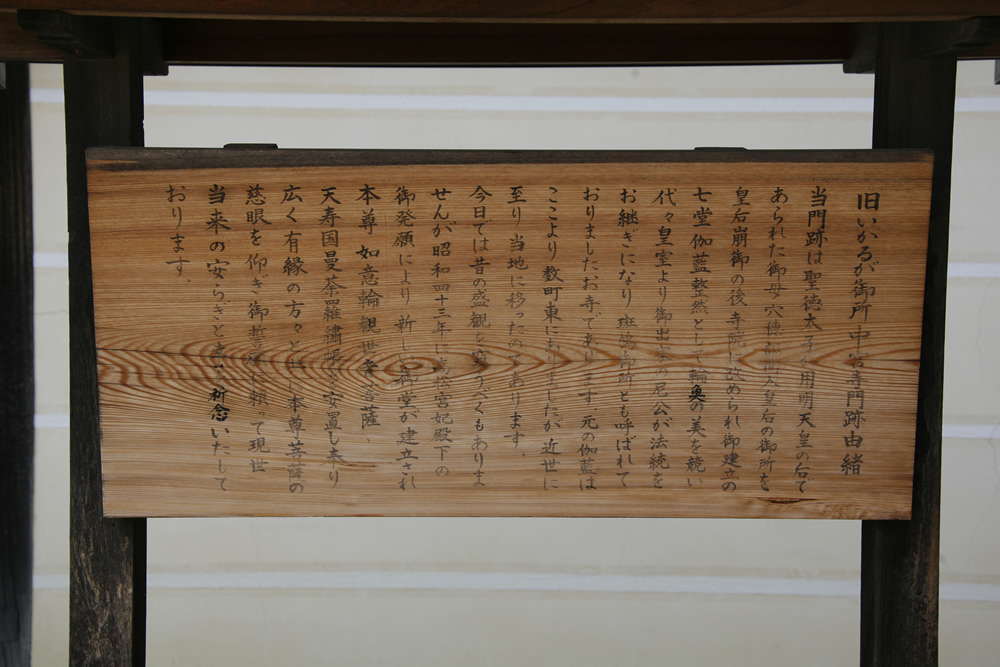 旧いかるが御所中宮寺門跡由緒
当門跡は聖徳太子が用明天皇の后で
あられた御母穴穂部間人皇后の御所を
皇后崩御の後寺院に改められ御建立の
七堂伽藍整然として輪奐の美を競い
代々皇室より御出家の尼公が法統を
お継ぎになり斑鳩御所とも呼ばれて
おりましたお寺であります元の伽藍は
ここより数町東にありましたが近世に
至り当地に移ったのであります。
今日では昔の盛観を うべくもありま
せんが昭和四十三年に高松宮妃殿下の
御発願により新しい御堂が建立され
本尊如意輪観世音菩薩、
天寿国曼荼羅繡帳を安置し奉り
広く有縁の方々と共に本尊菩薩の
慈眼を仰ぎ御 に頼って現世
当来の安らぎと 祈念いたして
おります。